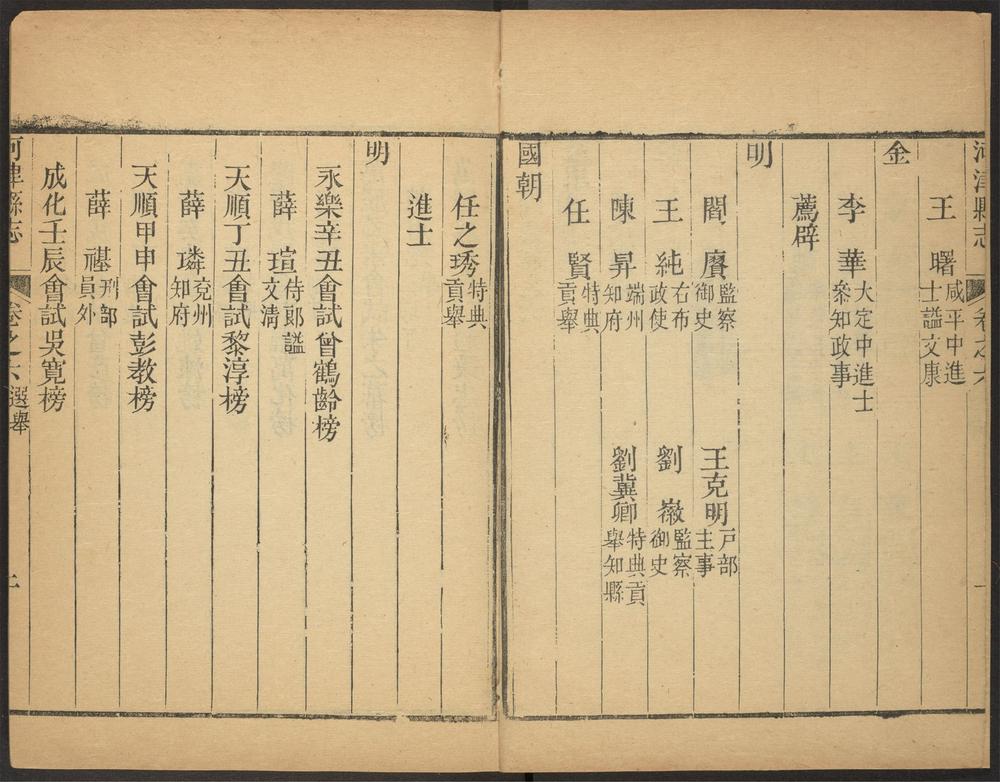 河津縣志 卷之六
王曙 咸平中進士謚文康
金
李華 大定中進士叅知政事
薦辟
明
閻賡 監察御史 王克明 戶部主事
王純 右布政使 劉 監察御史
陳昇 端州知府 劉冀卿 特典貢舉知縣
任賢 特典貢舉
國朝
任之琇 特典貢舉
進士
明
永樂辛丑會試曾鶴齡榜
薛瑄 侍郎謚文清
天順丁丑會試黎淳榜
薛璘 兗州知府
天順甲申會試彭教榜
薛 刑部員外
成化壬辰會試吳寬榜
河津縣志 卷之六 選舉